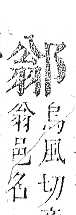 烏風切
翁邑名